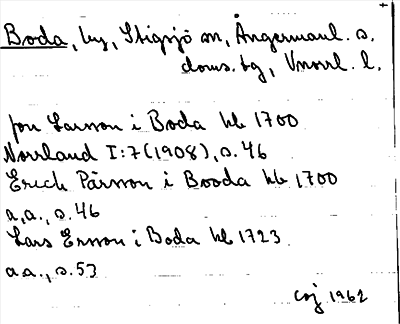 Boda, by, Stigsjö sn, Ångermanl. s.
doms.sg, Vnorrl. l.
Jon Larsson i Boda hb 1700
Norrland I:7 (1908), s. 46
Erich Pärsson i Booda hb 1700
a.a., s. 46
Lars Ersson i Boda hb 1723
a.a., s. 53
1962